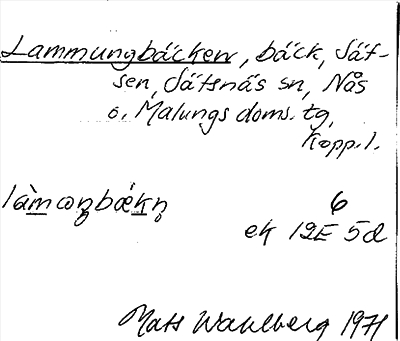 Lammungbäcken, bäck, Säf-
sen, Säfsnäs sn, Nås
o. Malungs doms. tg,
Kopp.l.
làmωŋbǽkn̥ 6
ek 12E 5d
Mats Wahlberg 1971